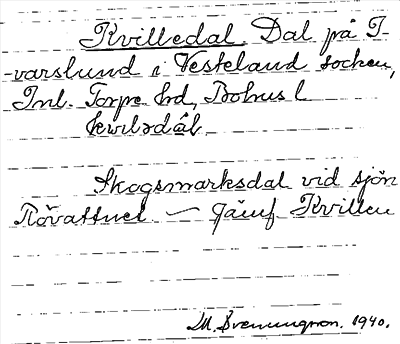 Kvilledal. Dal på I-
-varslund i Vesteland socken,
Inl. Torpe hd, Bohus l
kvilədål.
Skogsmarksdal vid sjön
Rövattnet — Jämf. Kvillen
1940.